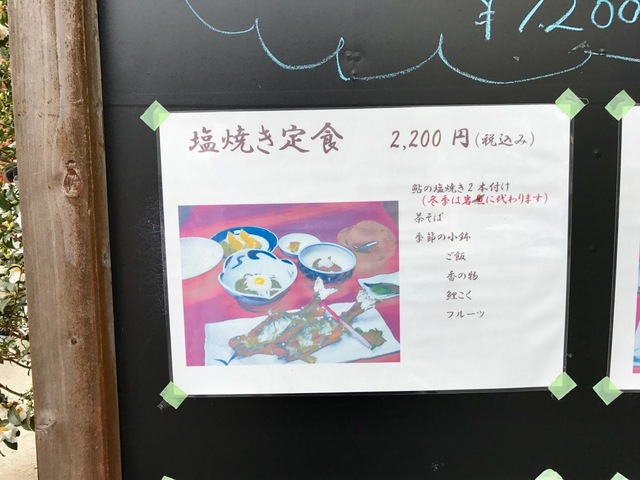 ¥1,200
塩焼き定食 2,200 円(税込み)
鮎の塩焼き2本付け
(冬季は岩魚に代わります)
茶そば
季節の小鉢
ご飯
香の物
鯉こく
フルーツ